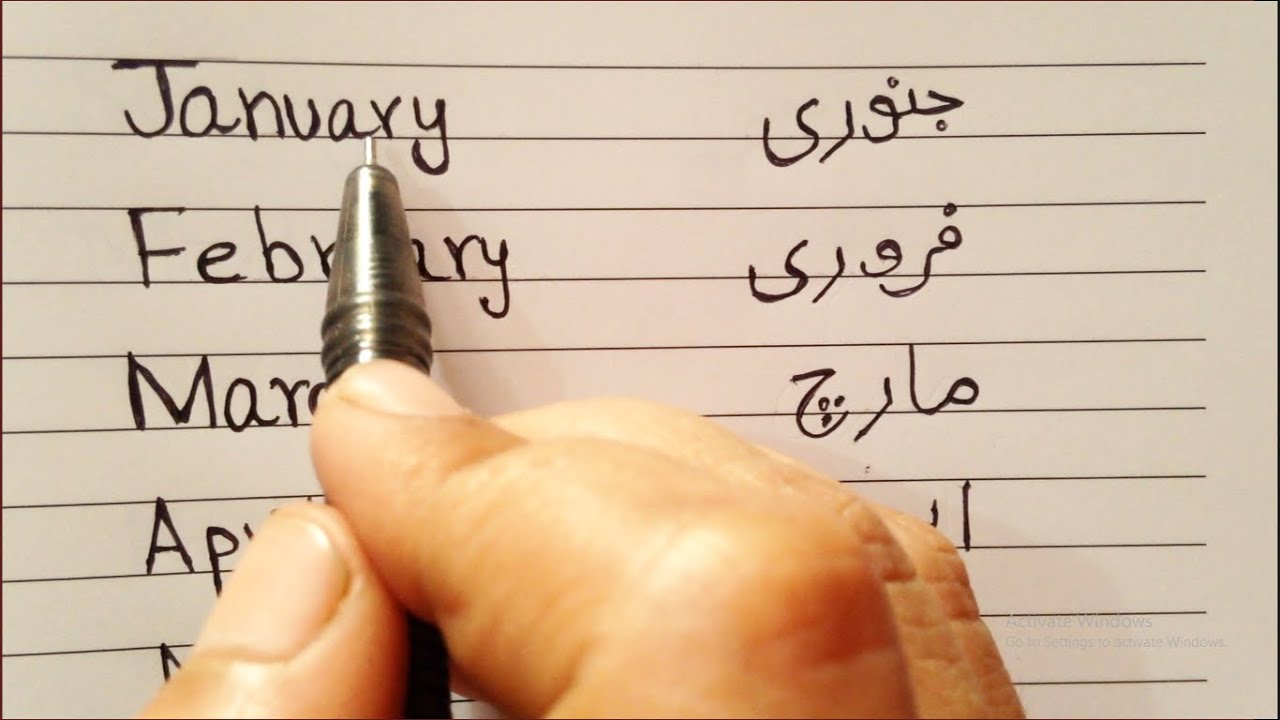 January جنوری
February فروری
March مارچ
Activate Windows
Go to Settings to activate Windows.